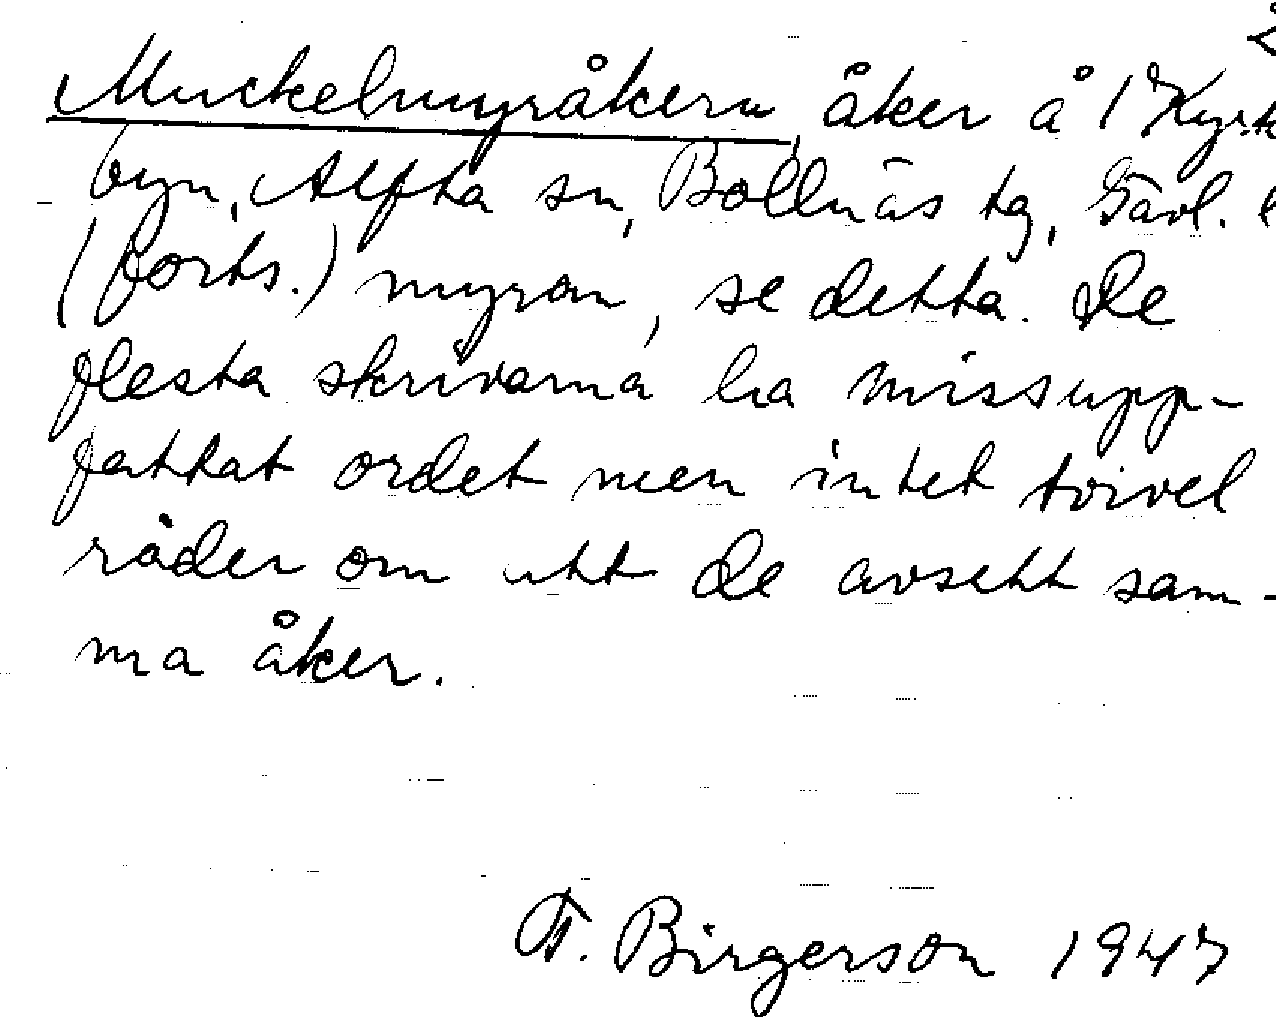 2
Muckelmyråkern, åker å 1 Kyrk
byn, Alfta sn, Bollnäs tg, Gävl. l
(forts.) myran, se detta. De
flesta skrivarna ha missupp-
fattat ordet men intet tvivel
råder om att de avsett sam-
ma åker.
F. Birgerson 1947